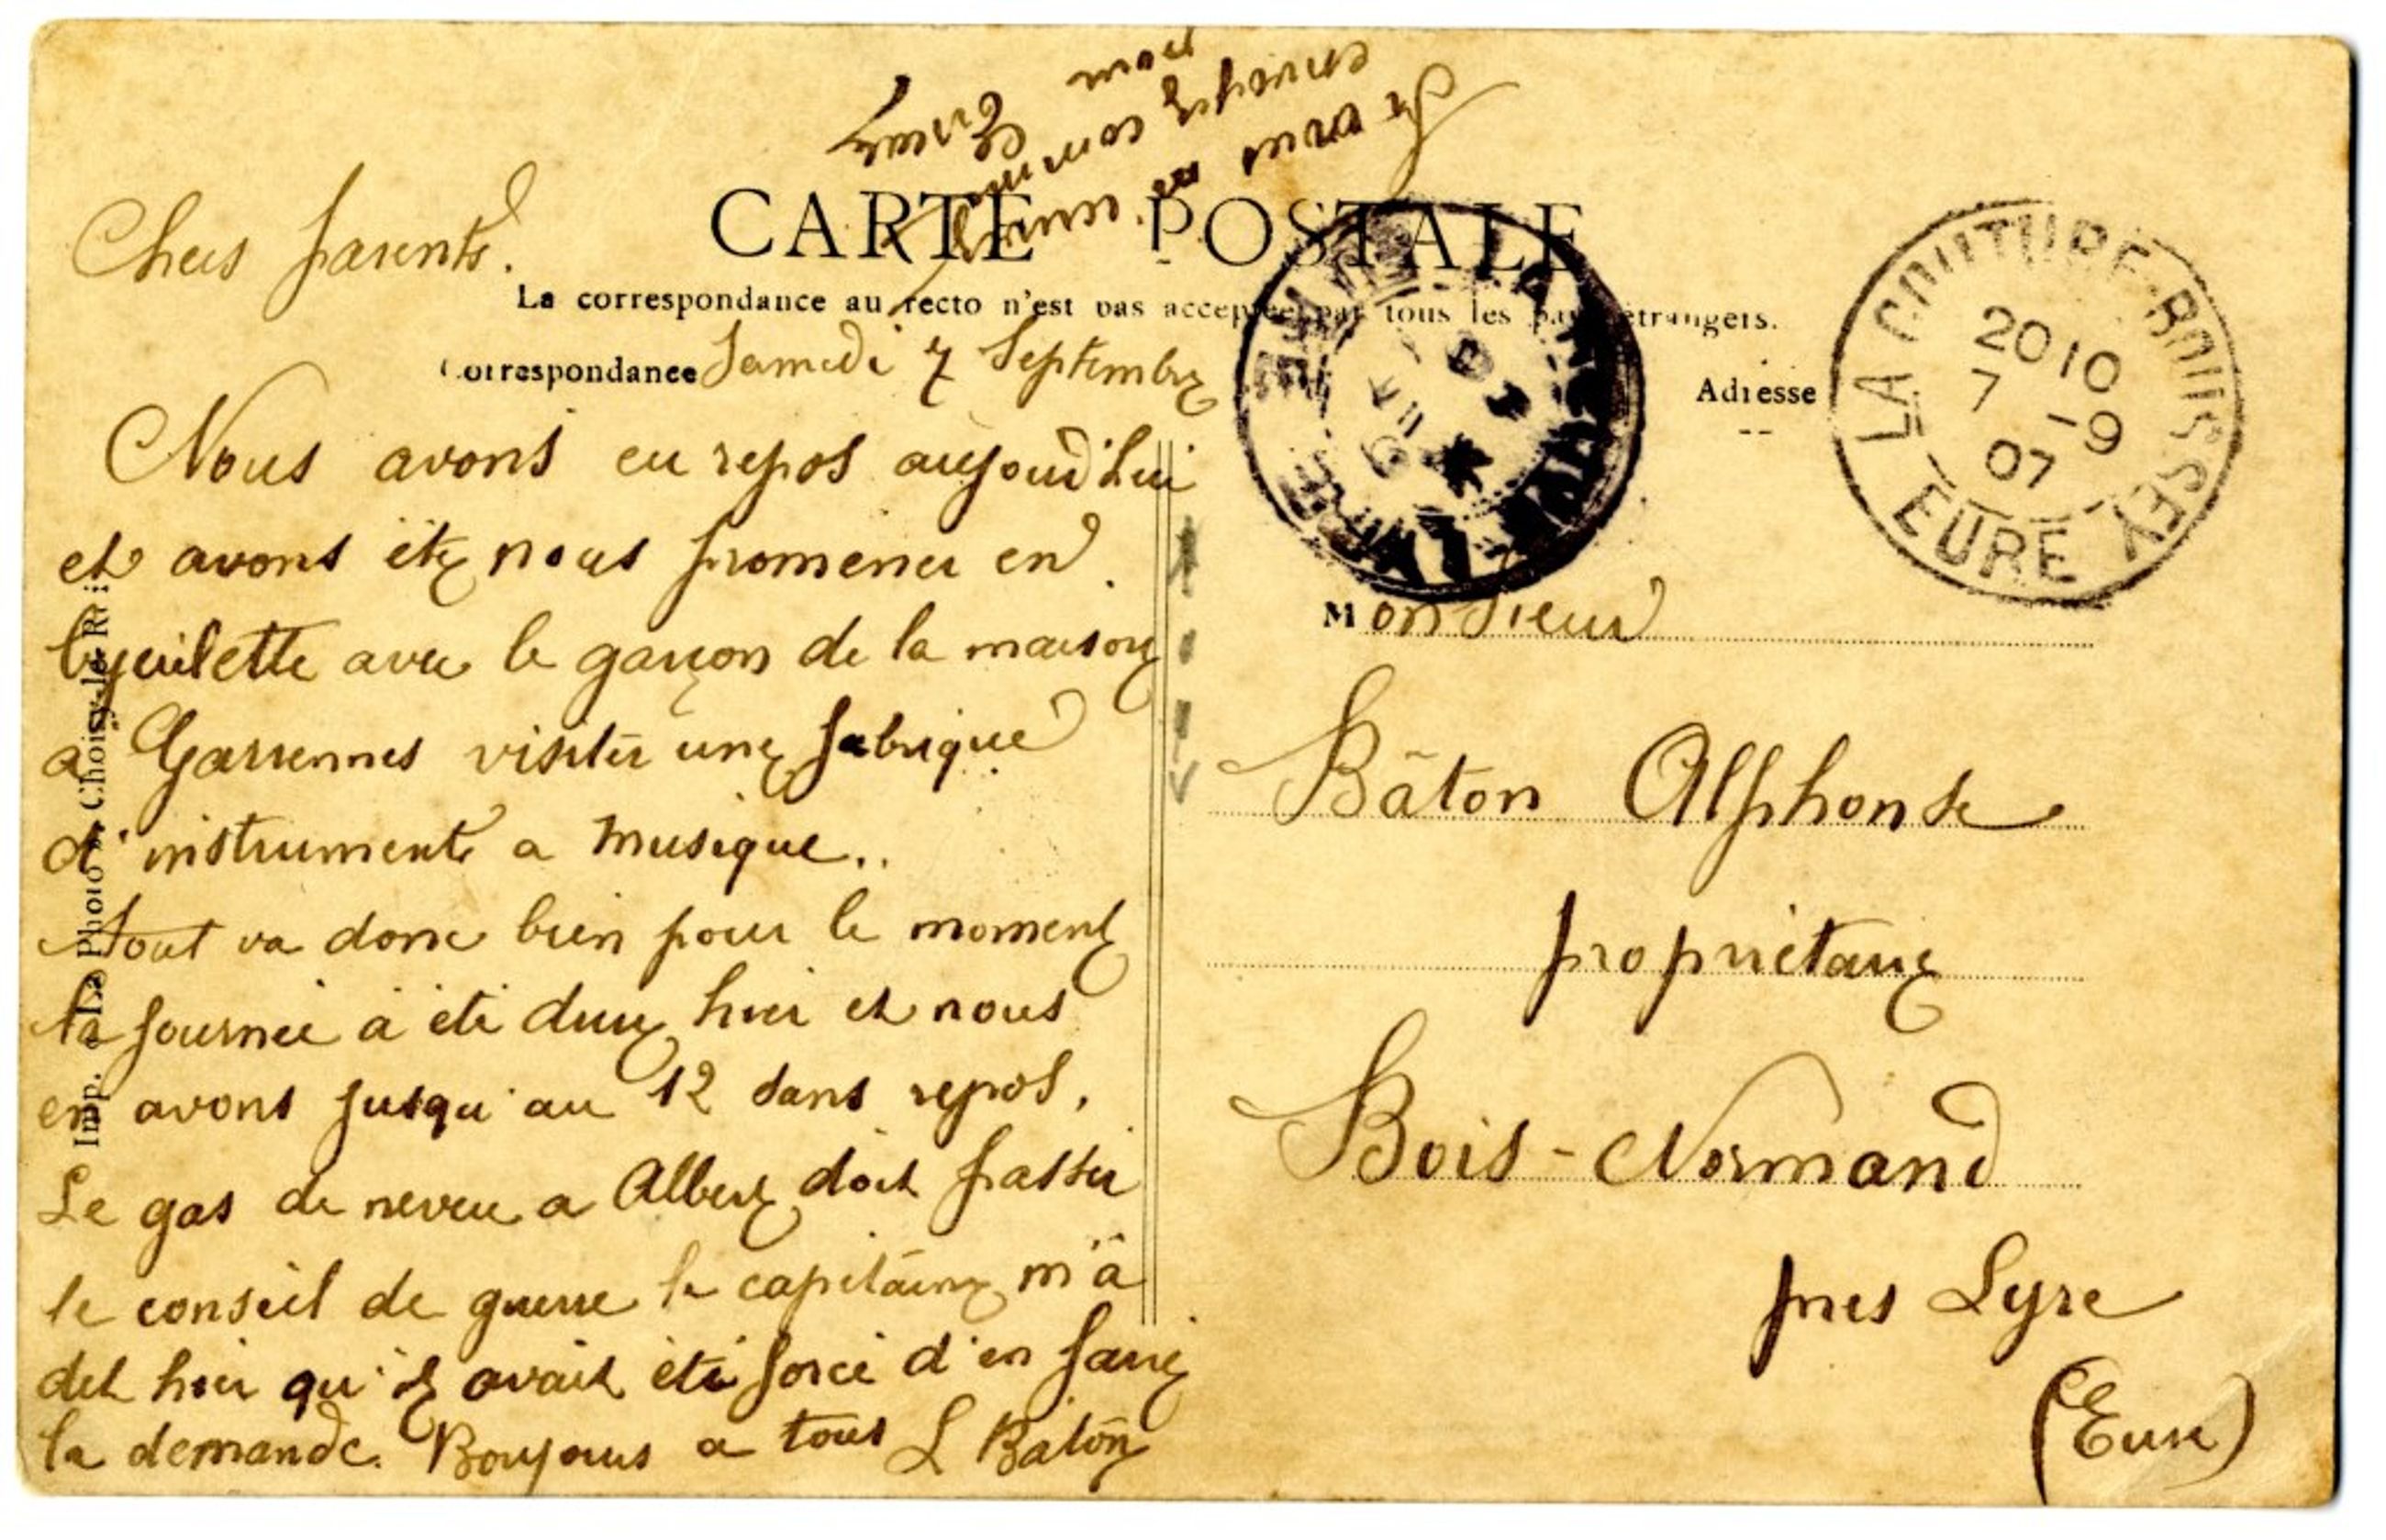 CARTE POSTALE
La correspondance au recto n'est pas acceptée par tous les pays étrangers.
Correspondance
Adresse
Chers parents.
Samedi 7 Septembre
Nous avons eu repos aujourd'hui
et avons été nous promener en
bycicilette avec le garçon de la maison
a Garrennes visiter une fabrique
d'instruments a musique..
Tout va donc bien pour le moment
la journée à été dure hier et nous
en avons jusqu'au 12 sans repos.
Le gas de neveu a Albert doit passer
le conseil de guerre le capitaine m'à
dit hier qu'il avait été forcé d'en faire
la demande. Bonjours a tous L Bâton
Si vous
envoyez
pour Evreux
LA COUTURE-BOUSSEY
20 10
7 -9
07
EURE
Monsieur
Bâton Alphonse
propriétaire
Bois-Normand
près Lyre
(Eure)
Imp. La Photo Choisy-le-Ri